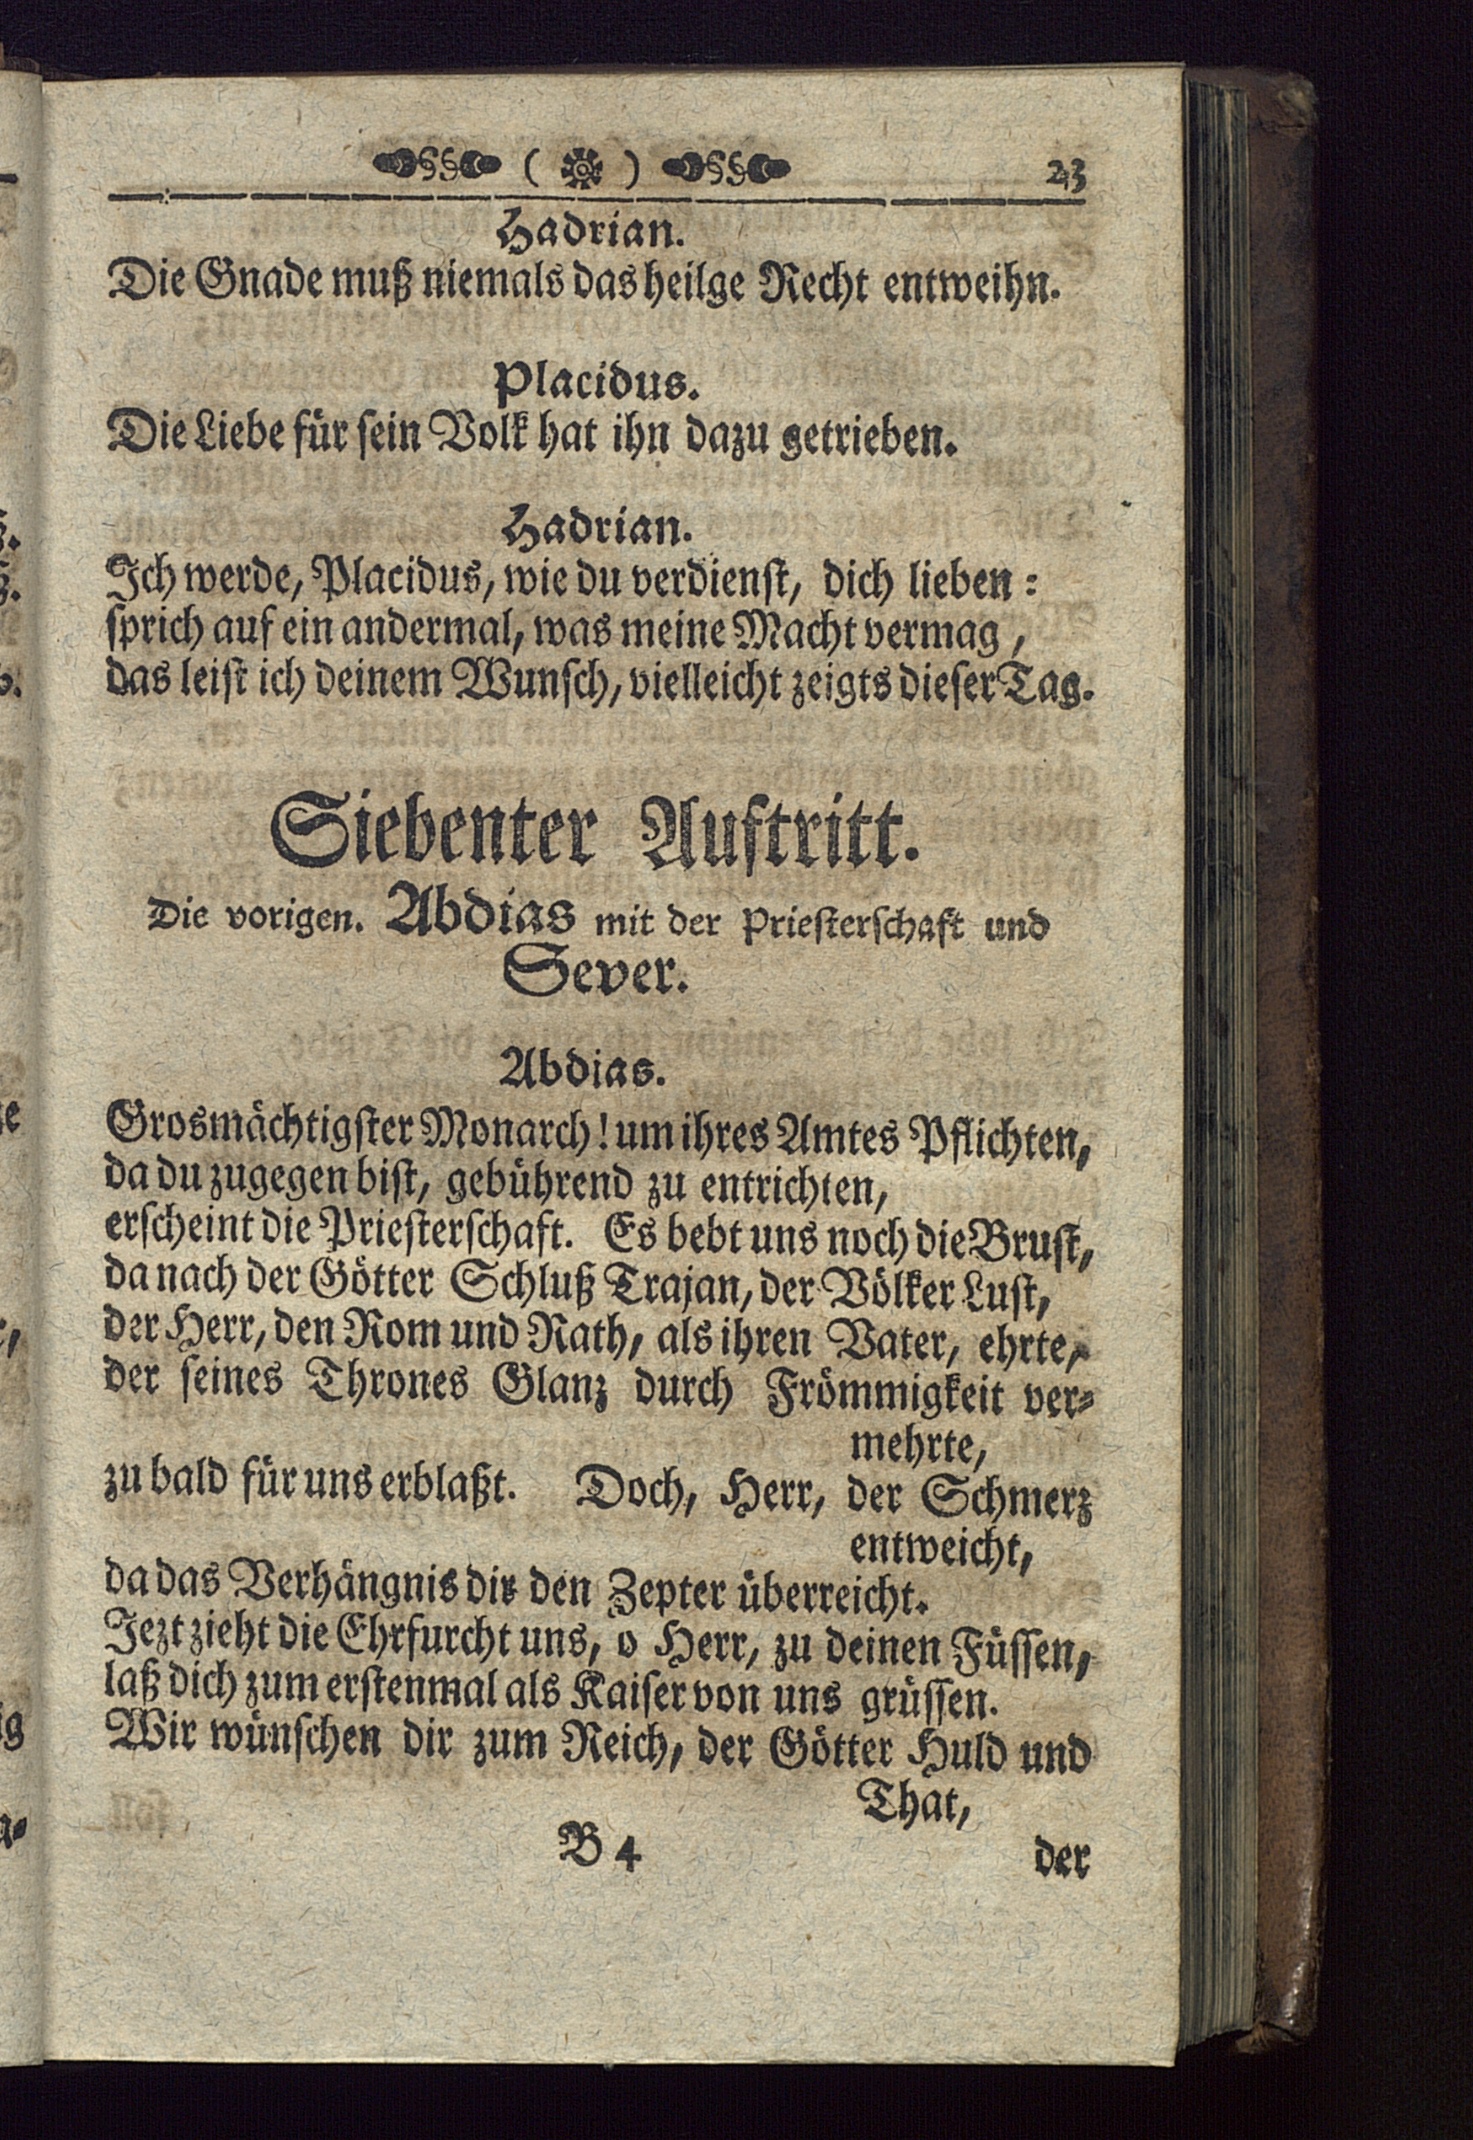 ( ) 23
Hadrian.
Die Gnade muß niemals das heilge Recht entweihn.
Placidus.
Die Liebe für sein Volk hat ihn dazu getrieben.
Hadrian.
Ich werde, Placidus, wie du verdienst, dich lieben:
sprich auf ein andermal, was meine Macht vermag,
das leist ich deinem Wunsch, vielleicht zeigts dieser Tag.
Siebenter Auftritt.
Die vorigen. Abdias mit der Priesterschaft und
Sever.
Abdias.
Grosmächtigster Monarch! um ihres Amtes Pflichten,
da du zugegen bist, gebührend zu entrichten,
erscheint die Priesterschaft. Es bebt uns noch die Brust,
da nach der Götter Schluß Trajan, der Völker Lust,
der Herr, den Rom und Rath, als ihren Vater, ehrte,
der seines Thrones Glanz durch Frömmigkeit ver-
mehrte,
zu bald für uns erblaßt. Doch, Herr, der Schmerz
entweicht,
da das Verhängnis dir den Zepter überreicht.
Jezt zieht die Ehrfurcht uns, o Herr, zu deinen Füssen,
laß dich zum erstenmal als Kaiser von uns grüssen.
Wir wünschen dir zum Reich, der Götter Huld und
That,
B 4
der